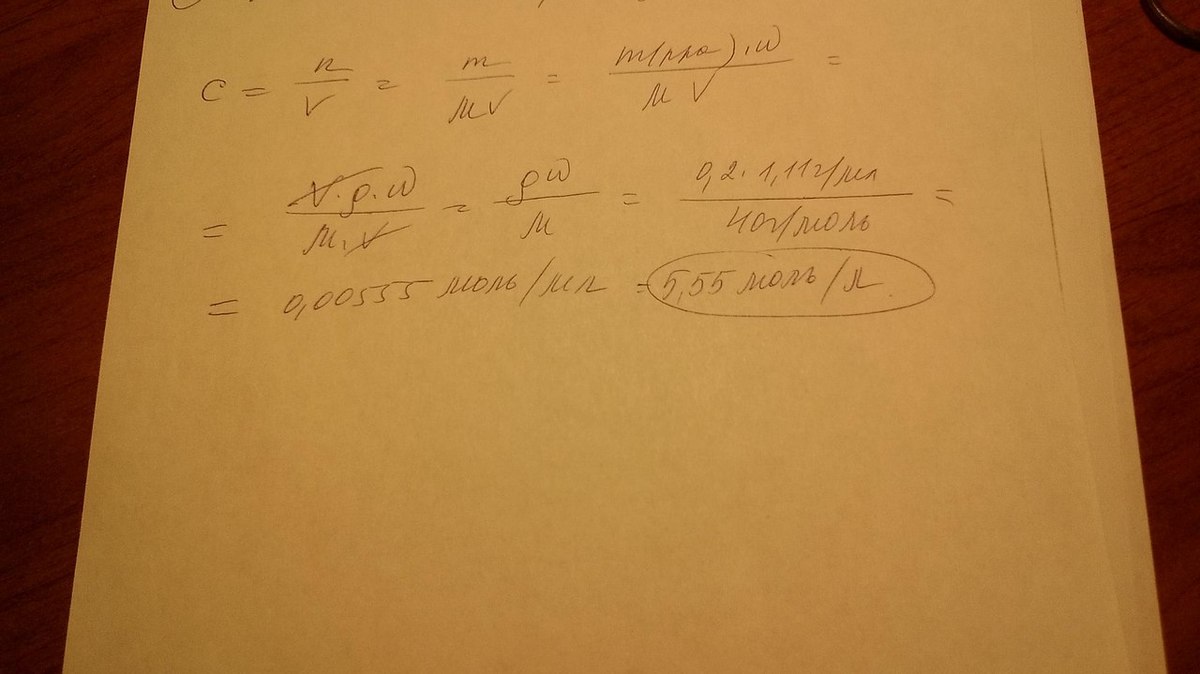 C = n/V = m/MV = m(р-ра)·ω/MV =
= V·ρ·ω/M·V = ρω/M = 0,2·1,11г/мл/40г/моль =
= 0,00555 моль/мл = 5,55 моль/л